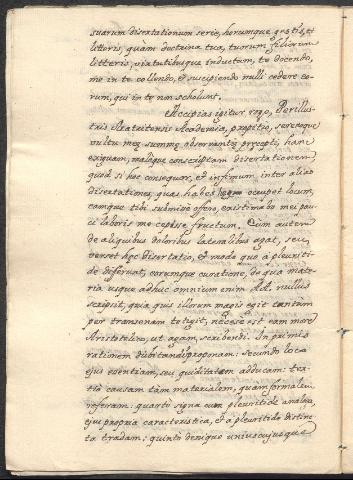 suarum disertationum serie, horumque gestis, et
litteris, quàm doctrina tua, tuorum filiorum
litteris, virtutibusque inductum, te docendo,
me in te collendo, et suscipiendo nulli cedere eo-
rum, qui in te non scholunt.
Accipias igitur rogo, Perillus-
tris Academia, propitio, serenoque
vultu meę summę observantię pręcepti, hanc
exiguam, maleque conscriptam disertationem,
quod si hoc consequor, et infimum inter alias
disertationes, quas habes, occupet locum,
eamque tibi submisse offero, existimabo mei pau-
ci laboris me cepisse fructum. Cùm autem
de aliquibus doloribus lateralibus agat, seu
verset hęc disertatio, et modo quo à pleuriti-
de differunt, eorumque curatione, de qua mate-
ria usque adhuc omnium enim nullus
scripsit, quia quis illorum magis egit tantùm
per transenam tetigit, necese est eam more
Aristotelico, ut agam, scribendi. In primis
rationem dubitandi proponam: secundo loco
ejus esentiam, seu quiditatem adducam: ter-
tio causam tàm materialem, quam formalem
referam: quartò signa cum pleuritide analoga,
ejus propria caracteristica, et à pleuritide distinc-
ta tradam: quintò denique uniuscujusque